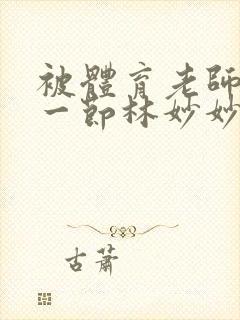 被體育老師
一節林妙妙
古蕭